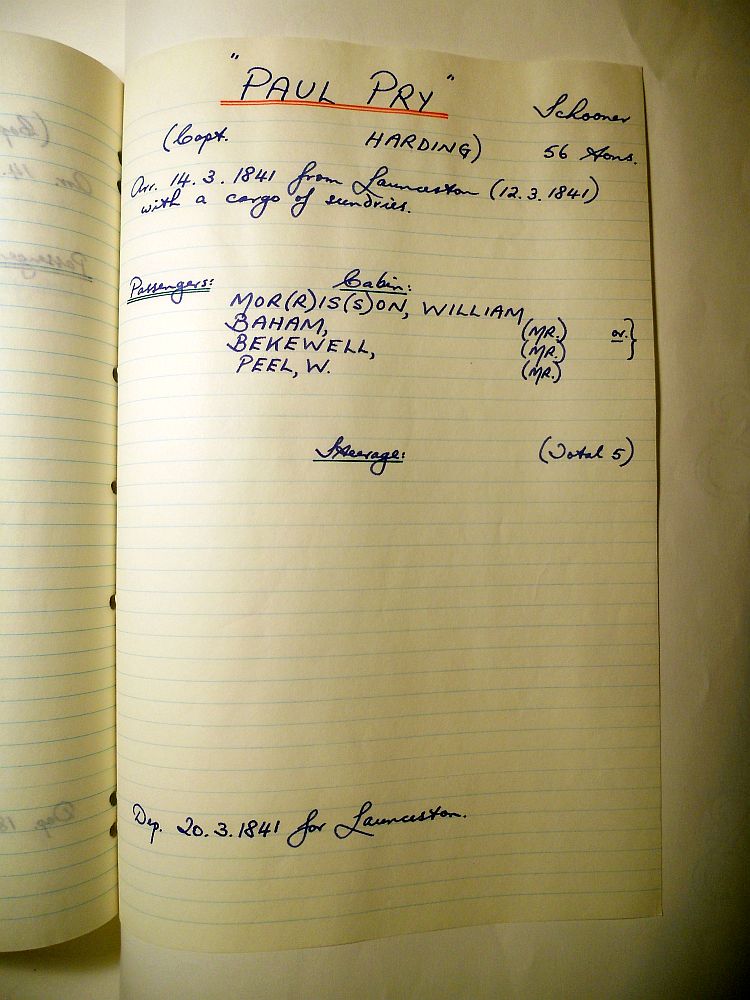 "PAUL PRY"
Schooner
(Capt. HARDING) 56 tons.
Arr. 14.3.1841 from Launceston (12.3.1841)
with a cargo of sundries.
Passengers: Cabin:
MOR(R)IS(S)ON, WILLIAM
BAHAM, (MR.) or.}
BEKEWELL, (MR.)
PEEL, W. (MR.)
Steerage: (Total 5)
Dep. 20.3.1841 for Launceston.